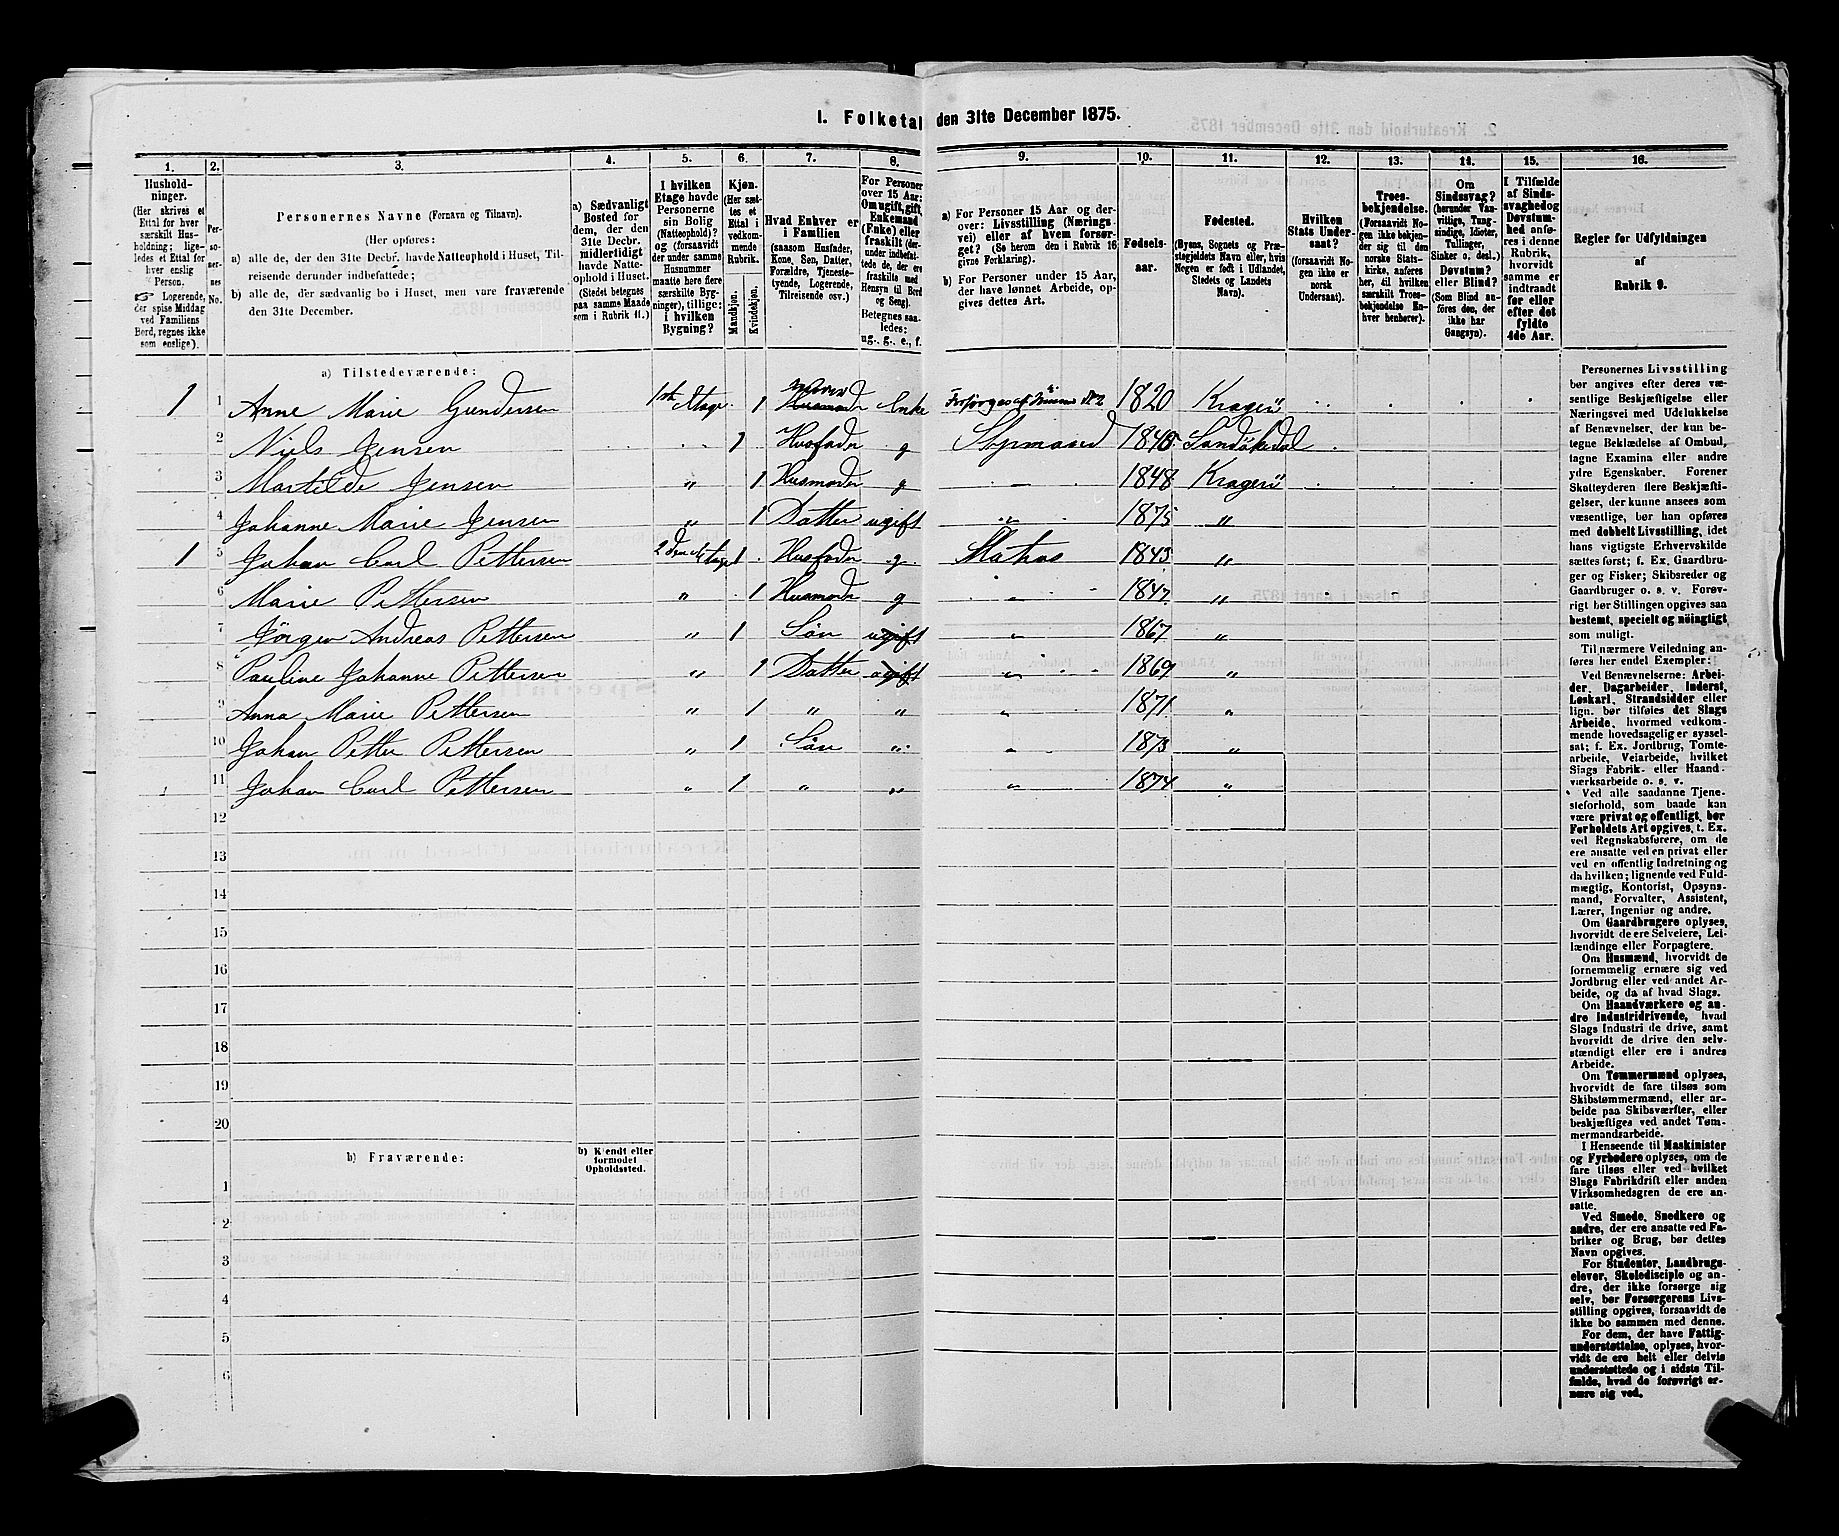 1. Folketal den 31te December 1875.
1. 2. 3. 4. 5. 6. 7. 8. 9. 10. 11. 12. 13. 14. 15. 16.
Hushold-
ninger.
(Her skrives et
Ettal for hver
særskilt Hus-
holdning; lige-
ledes et Ettal for
hver enslig
Person.
☞ Logerende,
der spise Middag
ved Familiens
Bord, regnes ikke
som enslige).
Per-
so-
ner-
nes
No.
Personernes Navne (Fornavn og Tilnavn).
(Her opføres:
a) alle de, der den 31te Decbr. havde Natteophold i Huset, Til-
reisende derunder indbefattede;
b) alle de, der sædvanlig bo i Huset, men vare fraværende
den 31te December.
a) Sædvanligt
Bosted for
dem, der den
31te Decbr.
midlertidigt
havde Natte-
ophold i Huset.
(Stedet betegnes
paa samme Maade
som i Rubrik 11.)
I hvilken
Etage havde
Personerne
sin Bolig
(Natteophold)?
og (forsaavidt
der under samme
Husnummer
maatte høre flere
særskilte Byg-
ninger), tillige:
i hvilken
Bygning?
Kjøn.
(Her sæt-
tes et
Ettal i
vedkom-
mende
Rubrik.
Mandkjøn.
Kvindekjøn.
Hvad Enhver er
i Familien
(saasom Husfader,
Kone, Søn, Datter,
Forældre, Tjeneste-
tyende, Logerende,
Tilreisende osv.)
For Personer
over 15 Aar:
Om ugift, gift,
Enkemand
(Enke) eller
fraskilt (der-
under indbefat-
tede de, der ere
fraskilte med
Hensyn til Bord
og Seng).
Betegnes saa-
ledes:
ug., g., e., f.
a) For Personer 15 Aar og der-
over: Livsstilling (Nærings-
vei) eller af hvem forsør-
get? (Se herom den i Rubrik 16
givne Forklaring).
b) For Personer under 15 Aar,
der have lønnet Arbeide, op-
gives dettes Art.
Fødsels-
aar.
Fødested.
(Byens, Sognets og Præ-
stegjeldets Navn eller, hvis
Nogen er født i Udlandet,
Stedets og Landets
Navn).
Hvilken
Stats Under-
saat?
(forsaavidt No-
gen ikke er
norsk
Undersaat).
Troes-
bekjendelse.
(Forsaavidt No-
gen ikke bekjen-
der sig til den
norske Stats-
kirke, anføres
her, til hvilken
særskilt Troes-
bekjendelse En-
hver henhører).
Om
Sindssvag?
(herunder Van-
vittige, Tung-
sindige, Idioter,
Tullinger,
Sinker o. desl.)
Døvstum?
eller Blind?
(Som Blind an-
føres den, der
ikke har
Gangsyn).
I Tilfælde
af Sinds-
svaghed og
Døvstum-
hed anføres
i denne
Rubrik,
hvorvidt
samme er
indtraadt
før eller
efter det
fyldte
4de Aar.
Regler for Udfyldningen
af
Rubrik 9.
a) Tilstedeværende:
1 1 Anne Marie Gundersen 1ste Etage 1 Moder Enke 1820 Kragerö
2 Niels Jensen 1 Husfader g Styrmand 1845 Sandökedal
3 Martilde Jensen " 1 Husmoder g 1848 Kragerö
4 Johanne Marie Jensen " 1 Datter ugift " 1875 "
1 5 Johan Carl Pettersen 2den Etage 1 Husfader g. Matros 1843 "
6 Marie Pettersen " 1 Husmoder g " 1847 "
7 Jörgen Andreas Pettersen " 1 Sön ugift " 1867 "
8 Pauline Johanne Pettersen " 1 Datter ugift " 1869 "
9 Anna Marie Pettersen " 1 " " " 1871 "
10 Johan Petter Pettersen " 1 Sön " " 1873 "
11 Johan Carl Pettersen " 1 " " " 1874 "
12
13
14
15
16
17
18
19
20
b) Fraværende:
b) Kjendt eller
formodet
Opholdssted.
1
2
3
4
5
6
Personernes Livsstilling
bør angives efter deres væ-
sentlige Beskjæftigelse eller
Næringsvei med Udelukkelse
af Benævnelser, der kun be-
tegne Beklædelse af Ombud,
tagne Examina eller andre
ydre Egenskaber. Forener
Skatteyderen flere Beskjæfti-
gelser, der kunne ansees som
væsentlige, bør han opføres
med dobbelt Livsstilling, idet
hans vigtigste Erhvervskilde
sættes først; f. Ex. Gaardbru-
ger og Fisker; Skibsreder og
Gaardbruger o. s. v. Forøv-
rigt bør Stillingen opgives saa
bestemt, specielt og nöiagtigt
som muligt.
Til nærmere Veiledning an-
føres her endel Exempler:
Ved Benævnelserne: Arbei-
der, Dagarbeider, Inderst,
Løskarl, Strandsidder eller
lign. bør tilføies det Slags
Arbeide, hvormed vedkom-
mende hovedsagelig er syssel-
sat; f. Ex. Jordbrug, Tomte-
arbeide, Veiarbeide, hvilket
Slags Fabrik- eller Haand-
værksarbeide o. s. v.
Ved alle saadanne Tjene-
steforhold, som baade kan
være privat og offentligt, bør
Forholdets Art opgives, t. Ex.
ved Regnskabsførere, om de
ere ansatte ved en privat eller
ved en offentlig Indretning og
da hvilken; lignende ved Fuld-
mægtig, Kontorist, Opsyns-
mand, Forvalter, Assistent,
Lærer, Ingeniør og andre.
Om Gaardbrugere oplyses,
hvorvidt de ere Selveiere, Lei-
lændinge eller Forpagtere.
Om Husmænd, hvorvidt de
fornemmelig ernære sig ved
Jordbrug eller ved andet Ar-
beide, og da af hvad Slags.
Om Haandværkere og an-
dre Industridrivende, hvad
Slags Industri de drive, samt
hvorvidt de drive den selv-
stændigt eller ere i andres
Arbeide.
Om Tømmermænd oplyses,
hvorvidt de fare tilsøs som
Skibstømmermænd, eller ar-
beide paa Skibsværfter, eller
beskjæftiges ved andet Tøm-
mermandsarbeide.
I Henseende til Maskinister
og Fyrbødere oplyses, om de
fare tilsøs eller ved hvilket
Slags Fabrikdrift eller anden
Virksomhedsgren de ere an-
satte.
Ved Smede, Snedkere og
andre, der ere ansatte ved Fa-
briker og Brug, bør dettes
Navn opgives.
For Studenter, Landbrugs-
elever, Skoledisciple og an-
dre, der ikke forsørge sig
selv, bør Forsørgerens Livs-
stilling opgives, forsaavidt de
ikke bo sammen med denne.
For dem, der have Fattig-
understøttelse, oplyses, hvor-
vidt de ere helt eller delvis
understøttede og i sidste Til-
fælde, hvad de forøvrigt er-
nære sig ved.